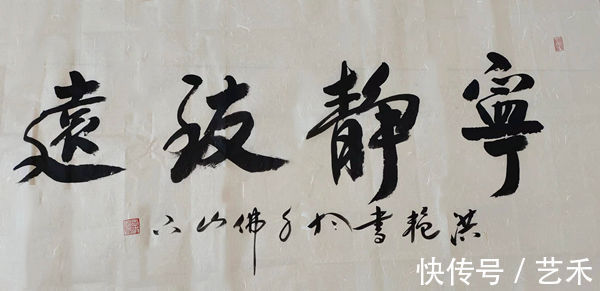 寧靜致遠
洪艳書於千佛山下
快传号 / 艺禾